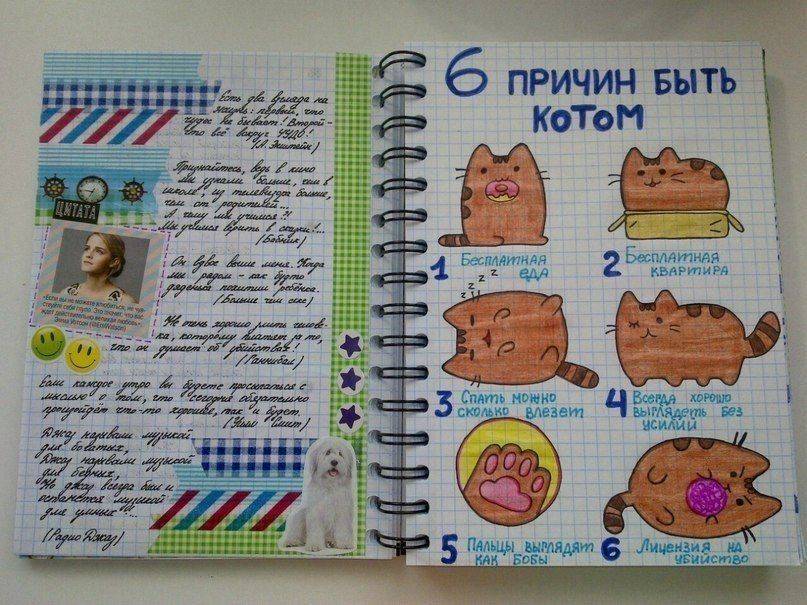 Есть два взгляда на
жизнь: первый, что
чудес не бывает! Второй -
что всё вокруг ЧУДО!
(А. Эйнштейн)
Признайтесь, ведь в кино
мы узнали больше, чем в
школе, из телевизора больше,
чем от родителей...
А чему мы учимся?!
Мы учимся верить в сказки!...
(Бобник)
ЦИТАТА
Он вдвое выше меня. Когда
мы рядом - как будто
дяденька похитил ребёнка.
(Больше чем секс)
«Если вы не можете влюбиться, не чув-
ствуйте себя глупо. Это значит, что вас
ждёт действительно великая любовь»
Эмма Уотсон (@EmWatson)
Не очень хорошо злить челове-
ка, которому платят за то,
что он думает об убийствах!
(Ганнибал)
Если каждое утро вы будете просыпаться с
мыслью о том, что сегодня обязательно
произойдёт что-то хорошее, так и будет.
(Уилл Смит)
Джаз называли музыкой
для богатых,
Джаз называли музыкой
для бедных,
Но джаз всегда был и
останется музыкой
для умных!...
(Радио Джаз)
6 ПРИЧИН БЫТЬ
КОТОМ
1 Бесплатная
еда
2 Бесплатная
квартира
z z z z
3 Спать можно
сколько влезет
4 Всегда хорошо
выглядеть без
усилий
5 Пальцы выглядят
как бобы
6 Лицензия на
убийство